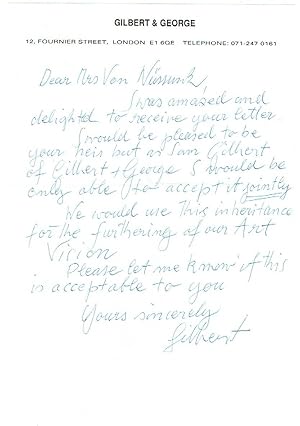 GILBERT & GEORGE
12, FOURNIER STREET, LONDON E1 6QE TELEPHONE: 071-247 0161
Dear Mrs Von
I was amazed and
delighted to receive your letter
I would be pleased to be
your heir but as I am Gilbert
of Gilbert + George I would be
only able to accept it jointly
We would use this inheritance
for the furthering of our Art
Vision
Please let me know if this
is acceptable to you
Yours sincerely
Gilbert